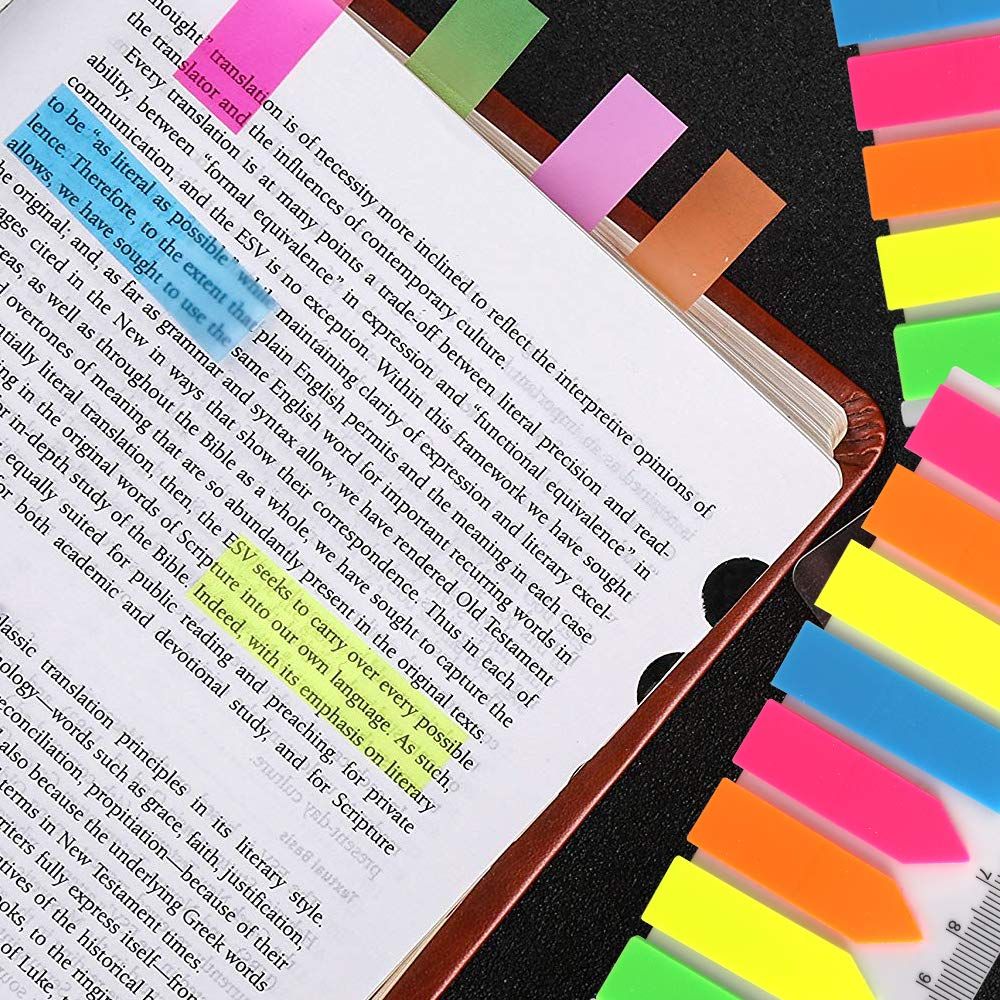 translation is of necessity more inclined to reflect the interpretive opinions of
the translator and the influences of contemporary culture.
Every translation is at many points a trade-off between literal precision and read-
ability, between "formal equivalence" in expression and "functional equivalence" in
communication, and the ESV is no exception. Within this framework we have sought
to be "as literal as possible" maintaining clarity of expression and literary excel-
lence. Therefore, to the extent that plain English permits and the meaning in each case
allows, we have sought to use the same English word for important recurring words in
he original; and, as far as grammar and syntax allow, we have rendered Old Testament
ages cited in the New in ways that show their correspondence. Thus in each of
reas, as well as throughout the Bible as a whole, we have sought to capture the
overtones of meaning that are so abundantly present in the original texts.
ntially literal translation, then, the ESV seeks to carry over every possible
in the original words of Scripture into our own language. As such,
in-depth study of the Bible. Indeed, with its emphasis on literary
equally suited for public reading and preaching, for private
both academic and devotional study, and for Scripture
lassic translation principles in its literary style.
ology—words such as grace, faith, justification,
econciliation, propitiation—because of their
also because the underlying Greek words
terms in New Testament times.
fully express itself—from
of the historical
to the ringing
of Luke,
present-day culture.
Textual Basis
7
8
9